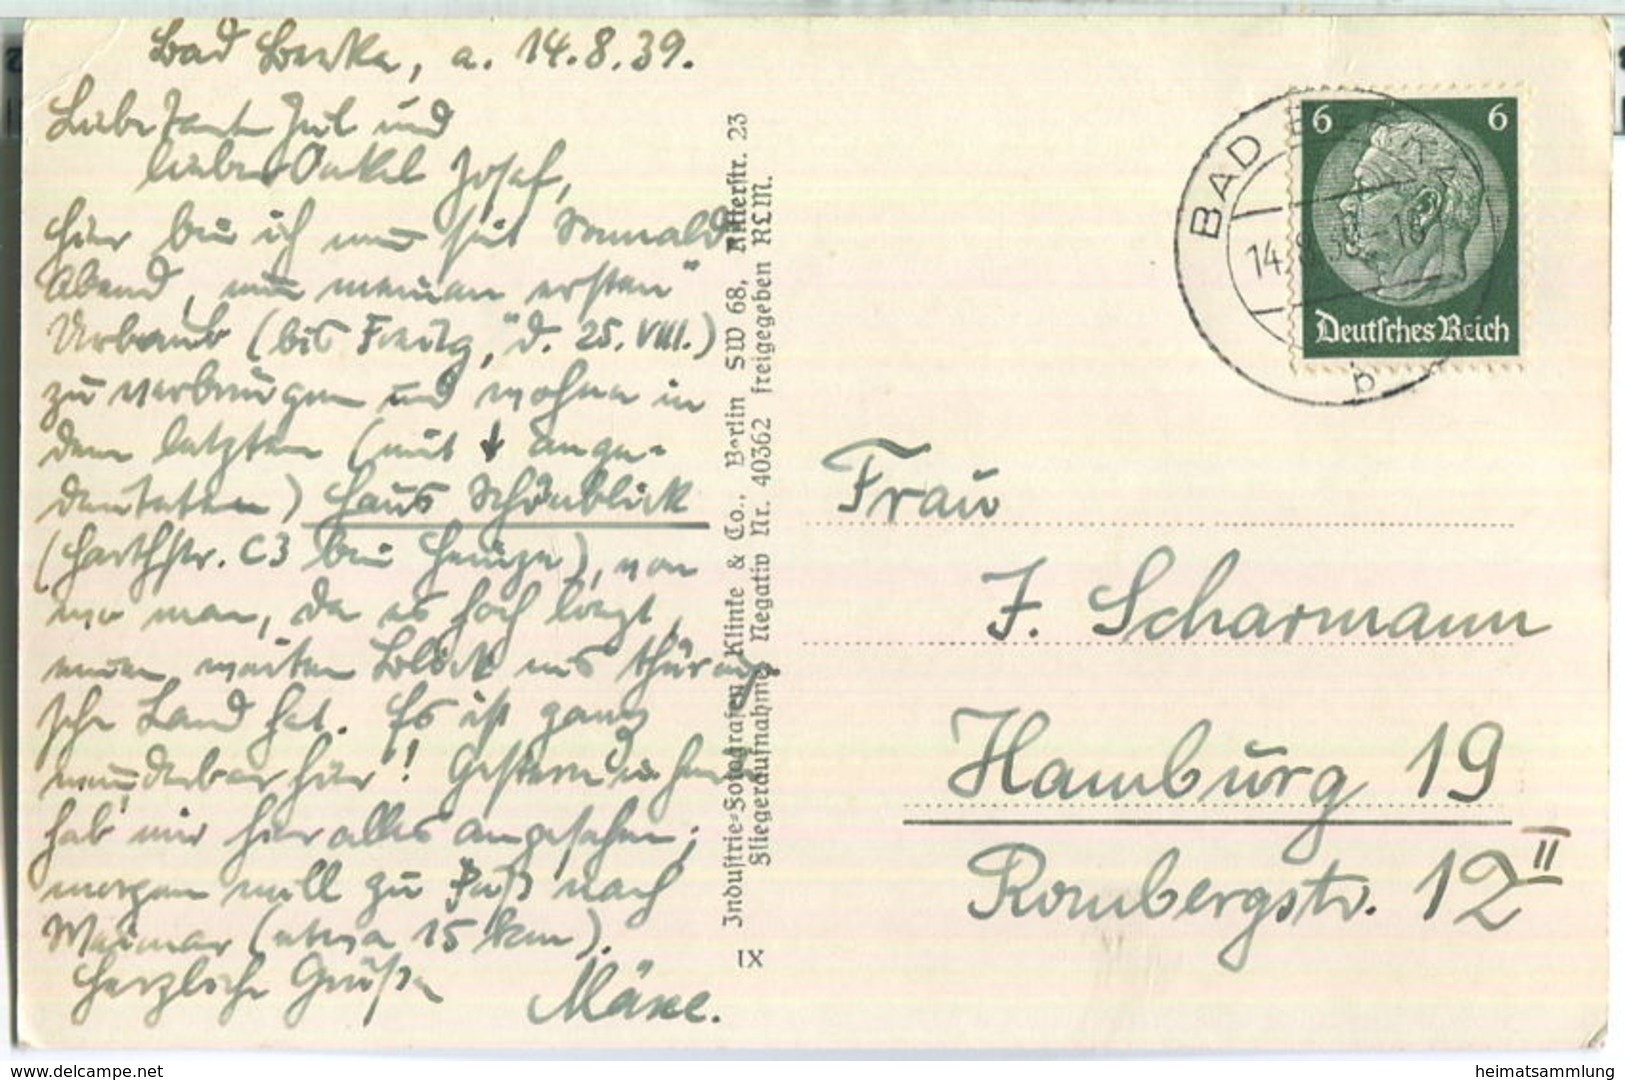 Bad Berka, a. 14.8.39.
Liebe Tante Jul und
lieber Onkel Josef,
hier bin ich nun seit
Abend, um meinen ersten
Urlaub (bis Freitg, d. 25. VIII.)
zu verbringen und wohne in
dem letzten (mit ↓ ange-
deuteten) Haus Schönblick
(Harthstr. C3 bei Heinze), von
wo man, da es hoch liegt,
einen weiten Blick ins thüringi-
sche Land hat. Es ist ganz
wunderbar hier! Gestern u. heute
hab' mir hier alles angesehen;
morgen will zu Fuß nach
Weimar (etwa 15 km).
Herzliche Grüße
Mäxe.
IX
Industrie-Fotografen Klinke & Co., Berlin SW 68, Ritterstr. 23
Fliegeraufnahme Negativ Nr. 40362 freigegeben RLM.
BAD BERKA
14.8.39 - 18
b
6 6
Deutsches Reich
Frau
J. Scharmann
Hamburg 19
Rombergstr. 12 II
www.delcampe.net
heimatsammlung